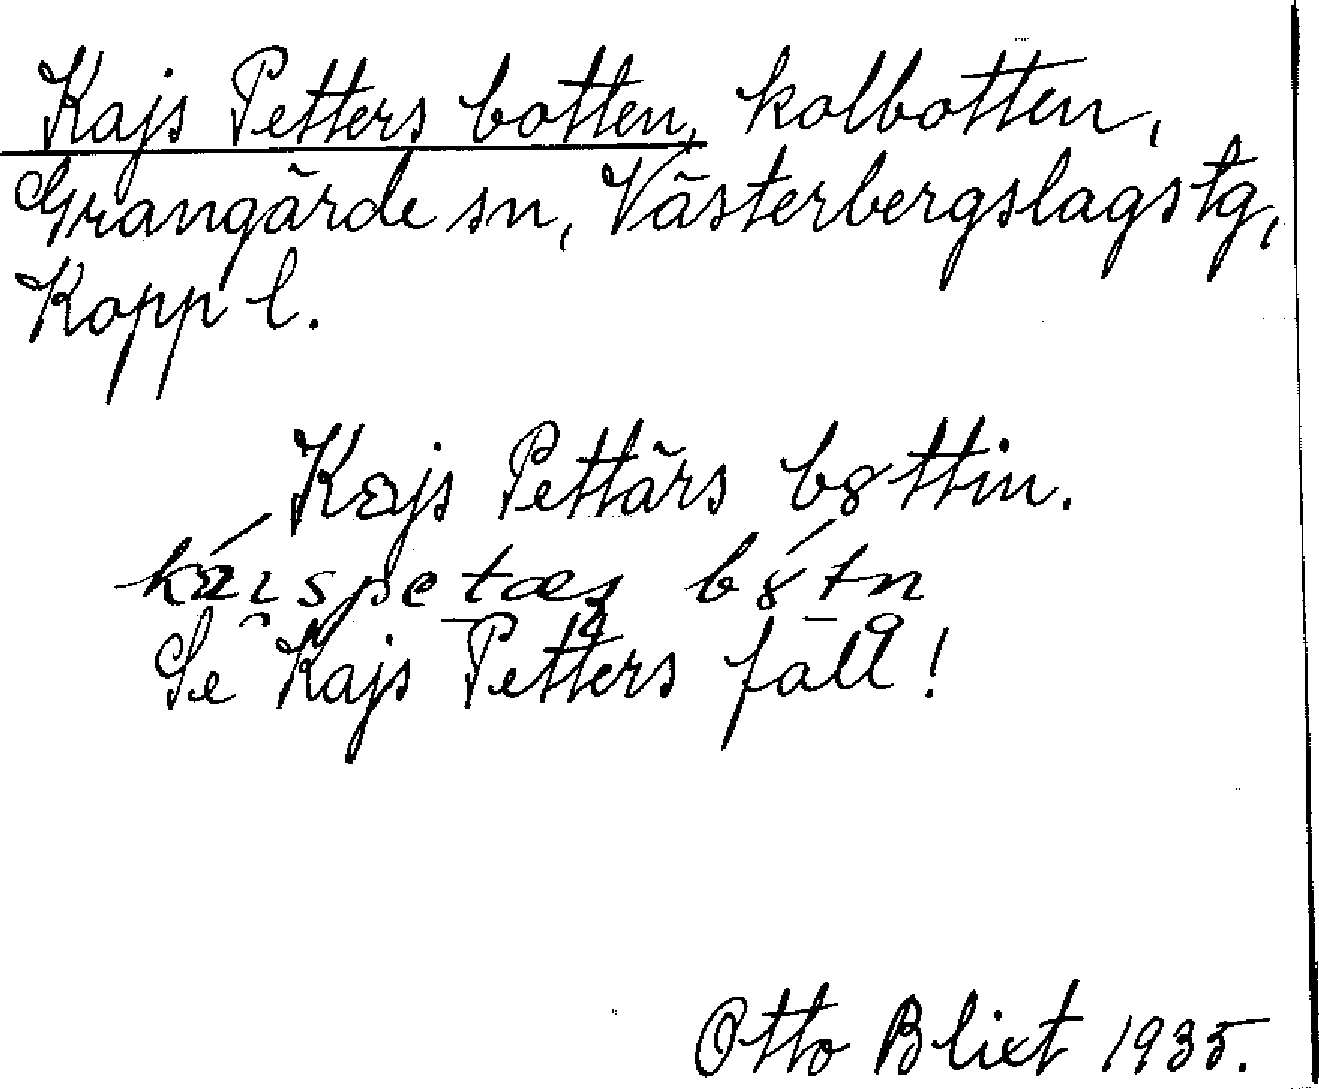 Kajs Petters botten, kolbotten,
Grangärde sn, Västerbergslags tg,
Kopp l.
Kajs Pettärs bȣttin.
Se Kajs Petters fall!
Otto Blixt 1935.